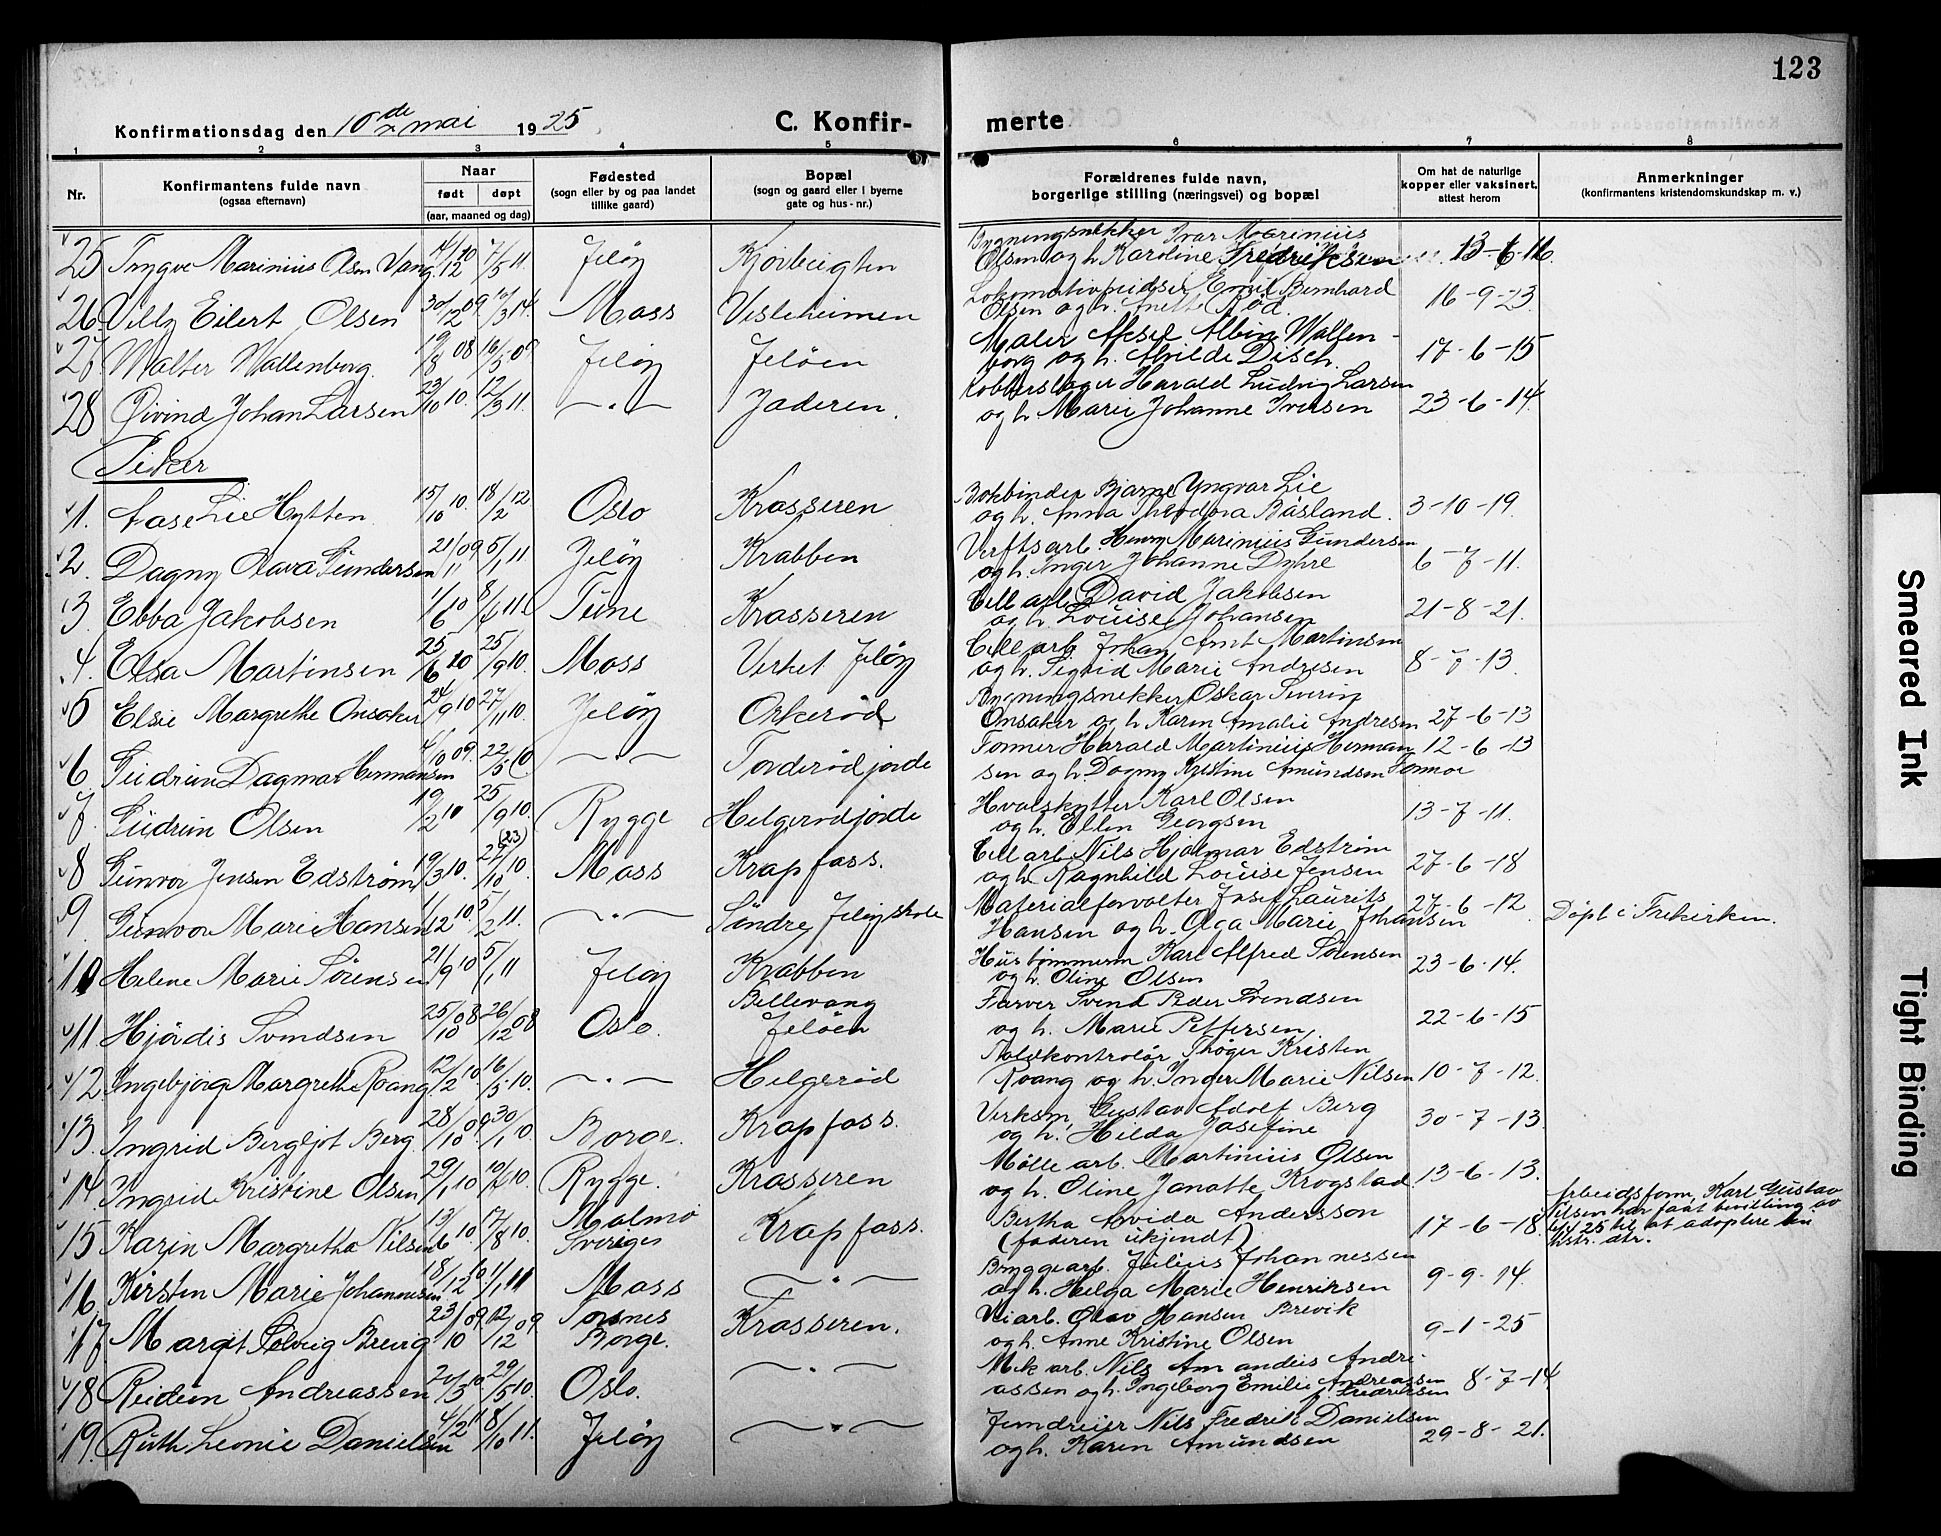 123
Konfirmationsdag den 10de mai 1925
C. Konfir-
merte
1 2 3 4 5 6 7 8
Nr.
Konfirmantens fulde navn
(ogsaa efternavn)
Naar
født døpt
(aar, maaned og dag)
Fødested
(sogn eller by og paa landet
tillike gaard)
Bopæl
(sogn og gaard eller i byerne
gate og hus-nr.)
Forældrenes fulde navn,
borgerlige stilling (næringsvei) og bopæl
Om hat de naturlige
kopper eller vaksinert,
attest herom
Anmerkninger
(konfirmantens kristendomskundskap m. v.)
25 Trygve Marinius Olsen Vang 7/5 11. Jeløy
Bygningsnekker Ivar Marinius
Olsen og h. Karoline Fredriksen 13-6-16.
26 Villy Eilert Olsen 30/12 09 10/3 14. Moss Vesleheimen
Emil Bernhard
Olsen og h. Anett Rød. 16-9-23.
27 Walter Wallenborg. 19/8 08 16/5 09 Jeløy Jeløen
Maler Aksel Albin Wallen-
borg og h. Alvilde Disch. 17-6-15
28 Øivind Johan Larsen 23/10 10. 12/3 11. —"— Jaderen.
Kobberslager Harald Ludvig Larsen
og h. Marie Johanne Iversen 23-6-14.
Piker
1. Aase Lie Hytten 15/10 10. 18/2 12 Oslo Krasseren
Bokbinder Bjarne Yngvar Lie
og h. Anna Theodora Båsland. 3-10-19.
2. Dagny Olava Gundersen 21/11 09 5/1 11 Jeløy Krabben
Verftsarb. Henry Marinius Gundersen
og h. Inger Johanne Dyhre 6-7-11.
3. Ebba Jakobsen 1/6 10 8/6 11. Tune Krasseren
Cell arb. David Jakobsen
og h. Louise Johansen 21-8-21.
4. Elsa Martinsen 25/6 10 25/9 10. Moss Verket Jeløy
Cell arb Johan Arnt Martinsen
og h. Sigrid Marie Andresen 8-7-13.
5 Elsie Margrethe Onsaker 24/9 10 27/11 10. Jeløy Orkerød
Bygningsnekker Oskar Severin
Onsaker og h. Karen Amalie Andresen 27-6-13
6 Gudrun Dagmar Hermansen 09. 22/5 10 —"— Torderødjorde
Former Harald Martinius Herman 12-6-13
sen og h. Dagny Kristine Amundsen
7. Gudrun Olsen 19/2 10 25/9 10. Rygge Helgerødjorde
Hvalskytter Karl Olsen
og h. Ellen Georgsen 13-7-11.
8 Gunvor Jensen Edstrøm 19/3 10. (23) 27/10 10. Moss Krapfoss.
Cell arb. Nils Hjalmar Edstrøm
og h. Ragnhild Louise Jensen 27-6-18
9 Gunvor Marie Hansen 1/12 10. 5/2 11. —"— Søndre Jeløy skole
Materialforvalter Josef Laurits 27-6-12 Døpt i Frikirken.
Hansen og h. Olga Marie Johansen
10 Helene Marie Sørensen 21/9 10 5/1 11 Jeløy Krabben
Hustømmerm Karl Alfred Sørensen
og h. Oline Olsen 23-6-14.
11 Hjørdis Svendsen 25/10 08 26/12 08 Oslo. Bellevang
Jeløen
Farver Svend Peder Svendsen
og h. Marie Pettersen, 22-6-15
12 Ingebjørg Margrethe Roang 12/2 10. 16/5 10. —"— Helgerød
Toldkontrolør Thøger Kristen
Roang og h. Inger Marie Nilsen 10-7-12.
13. Ingrid Bergljot Berg 28/10 09 30/1 10. Borge. Krapfoss.
Verksm. Gustav Adolf Berg
og h. Hilda Josefine 30-7-13.
14. Ingrid Kristine Olsen 29/1 10 10/4 10. Rygge. Krasseren
Mølle arb. Martinius Olsen
og h. Oline Janatte Krogstad 13-6-13.
15 Karin Margretha Nilsen 13/6 10 17/8 10. Malmø
Sveriges Krapfoss.
Bertha Avida Andersson
(faderen ukjendt) 17-6-18.
Arbeidsform. Karl Gustav
Nilsen har faat bevilling av
25 til at adoptere sin
hustr. dtr.
16. Kirsten Marie Johannesen 18/12 10. 1/1 11 Moss —"—
Bryggearb. Julius Johannessen
og h. Helga Marie Henriksen 9-9-14.
17. Margit Solveig Brevig 23/10 09 12/12 09 Torsnes
Borge. Krasseren.
Veiarb. Olav Hansen Brevik
og h. Anne Kristine Olsen 9-1-25
18 Reidun Andreassen 20/3 10. 29/5 10. Oslo. —"—
Mek arb. Nils Amandeus Andre-
assen og h. Ingeborg Emilie Andreassen
f. Fredriksen 8-7-14
19. Ruth Leonie Danielsen 4/2 11 8/10 11. Jeløy —"—
Jerndreier Nils Fredrik Danielsen
og h. Karen Amundsen 29-8-21.
Smeared Ink
Tight Binding